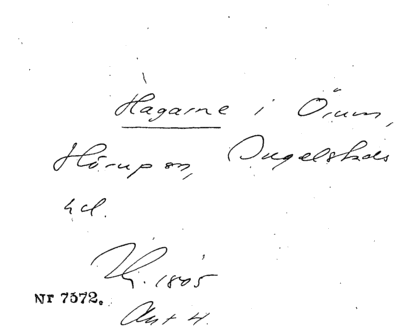 Hagarne i Örum,
Hörups sn, Ingelstads
hd.
Th. 1805
Nr 7572.
Akt 4.